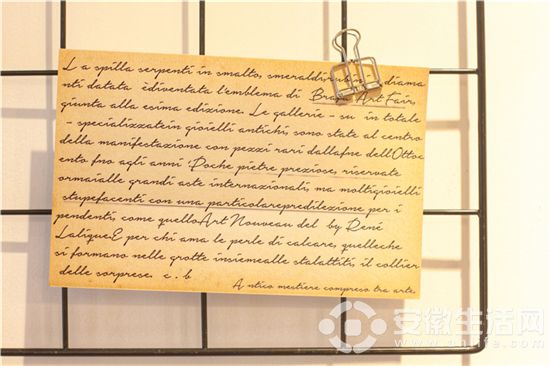 La spilla serpenti in smalto, smeraldi, rubini, diama
nti datata idiventata l'emblema di Brafa Art Fair,
giunta alla esima edizione. Le gallerie - su in totale
- specializzatein gioielli antichi, sono state al centro
della manifestazione con pezzi rari dallafne dell'Ottoc
ento fno agli anni :Poche pietre preziose, riservate
ormaialle grandi aste internazionali, ma moltigioielli
stupefacenti con una particolarepredilezione per i
pendenti, come quelloArt Nouveau del by René
Lalique.E per chi ama le perle di calcare, quelleche
si formano nelle grotte insiemealle stalattiti, il collier
delle sorprese. c.b
Antico mestiere compreso tra arte.
安徽生活网
www.ahlife.com